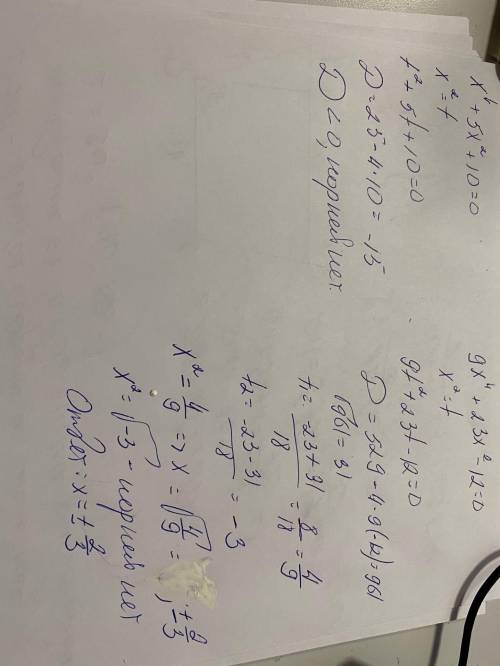 x⁴ + 5x² + 10 = 0
x² = t
t² + 5t + 10 = 0
D = 25 - 4·10 = -15
D < 0, корней нет.
9x⁴ + 23x² - 12 = 0
x² = t
9t² + 23t - 12 = 0
D = 529 - 4·9(-12) = 961
√961 = 31
t₁ = (-23+31)/18 = 8/18 = 4/9
t₂ = (-23-31)/18 = -3
x² = 4/9 => x = √(4/9) = ; ± 2/3
x² = √-3 - корней нет
Ответ: x = ± 2/3